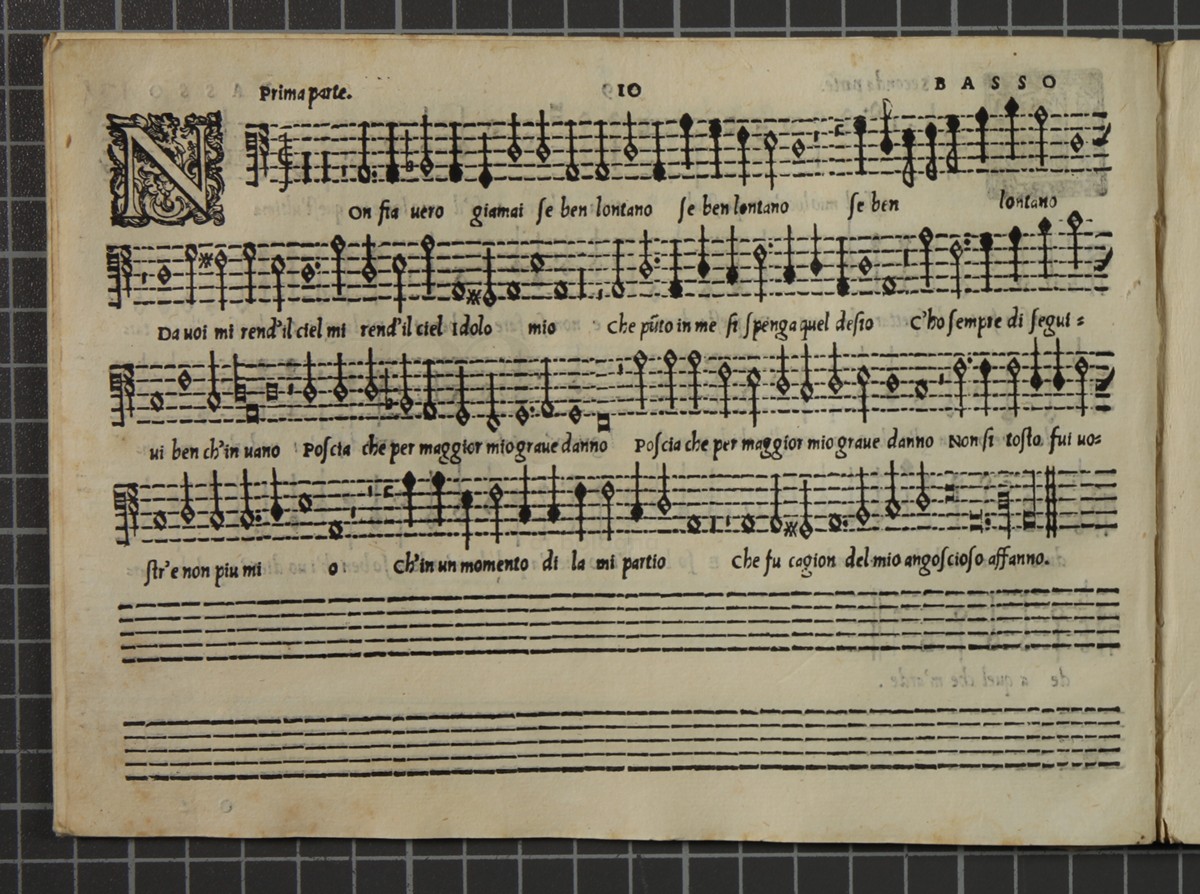 Prima parte. 10 BASSO
NOn fia vero giamai se ben lontano se ben lontano se ben lontano
Da voi mi rend'il ciel mi rend'il ciel Idolo mio Che pũto in me si spenga quel desio C'ho sempre di segui=
vi ben ch'in vano Poscia che per maggior mio grave danno Poscia che per maggior mio grave danno Non si tosto fui vo=
str'e non piu mi o Ch'in un momento di la mi partio Che fu cagion del mio angoscioso affanno.